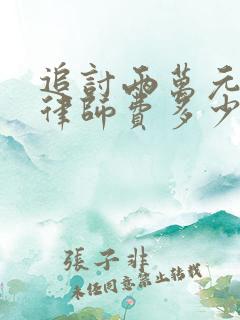 追討兩萬元
律師費多少
張子非
未经同意禁止转载